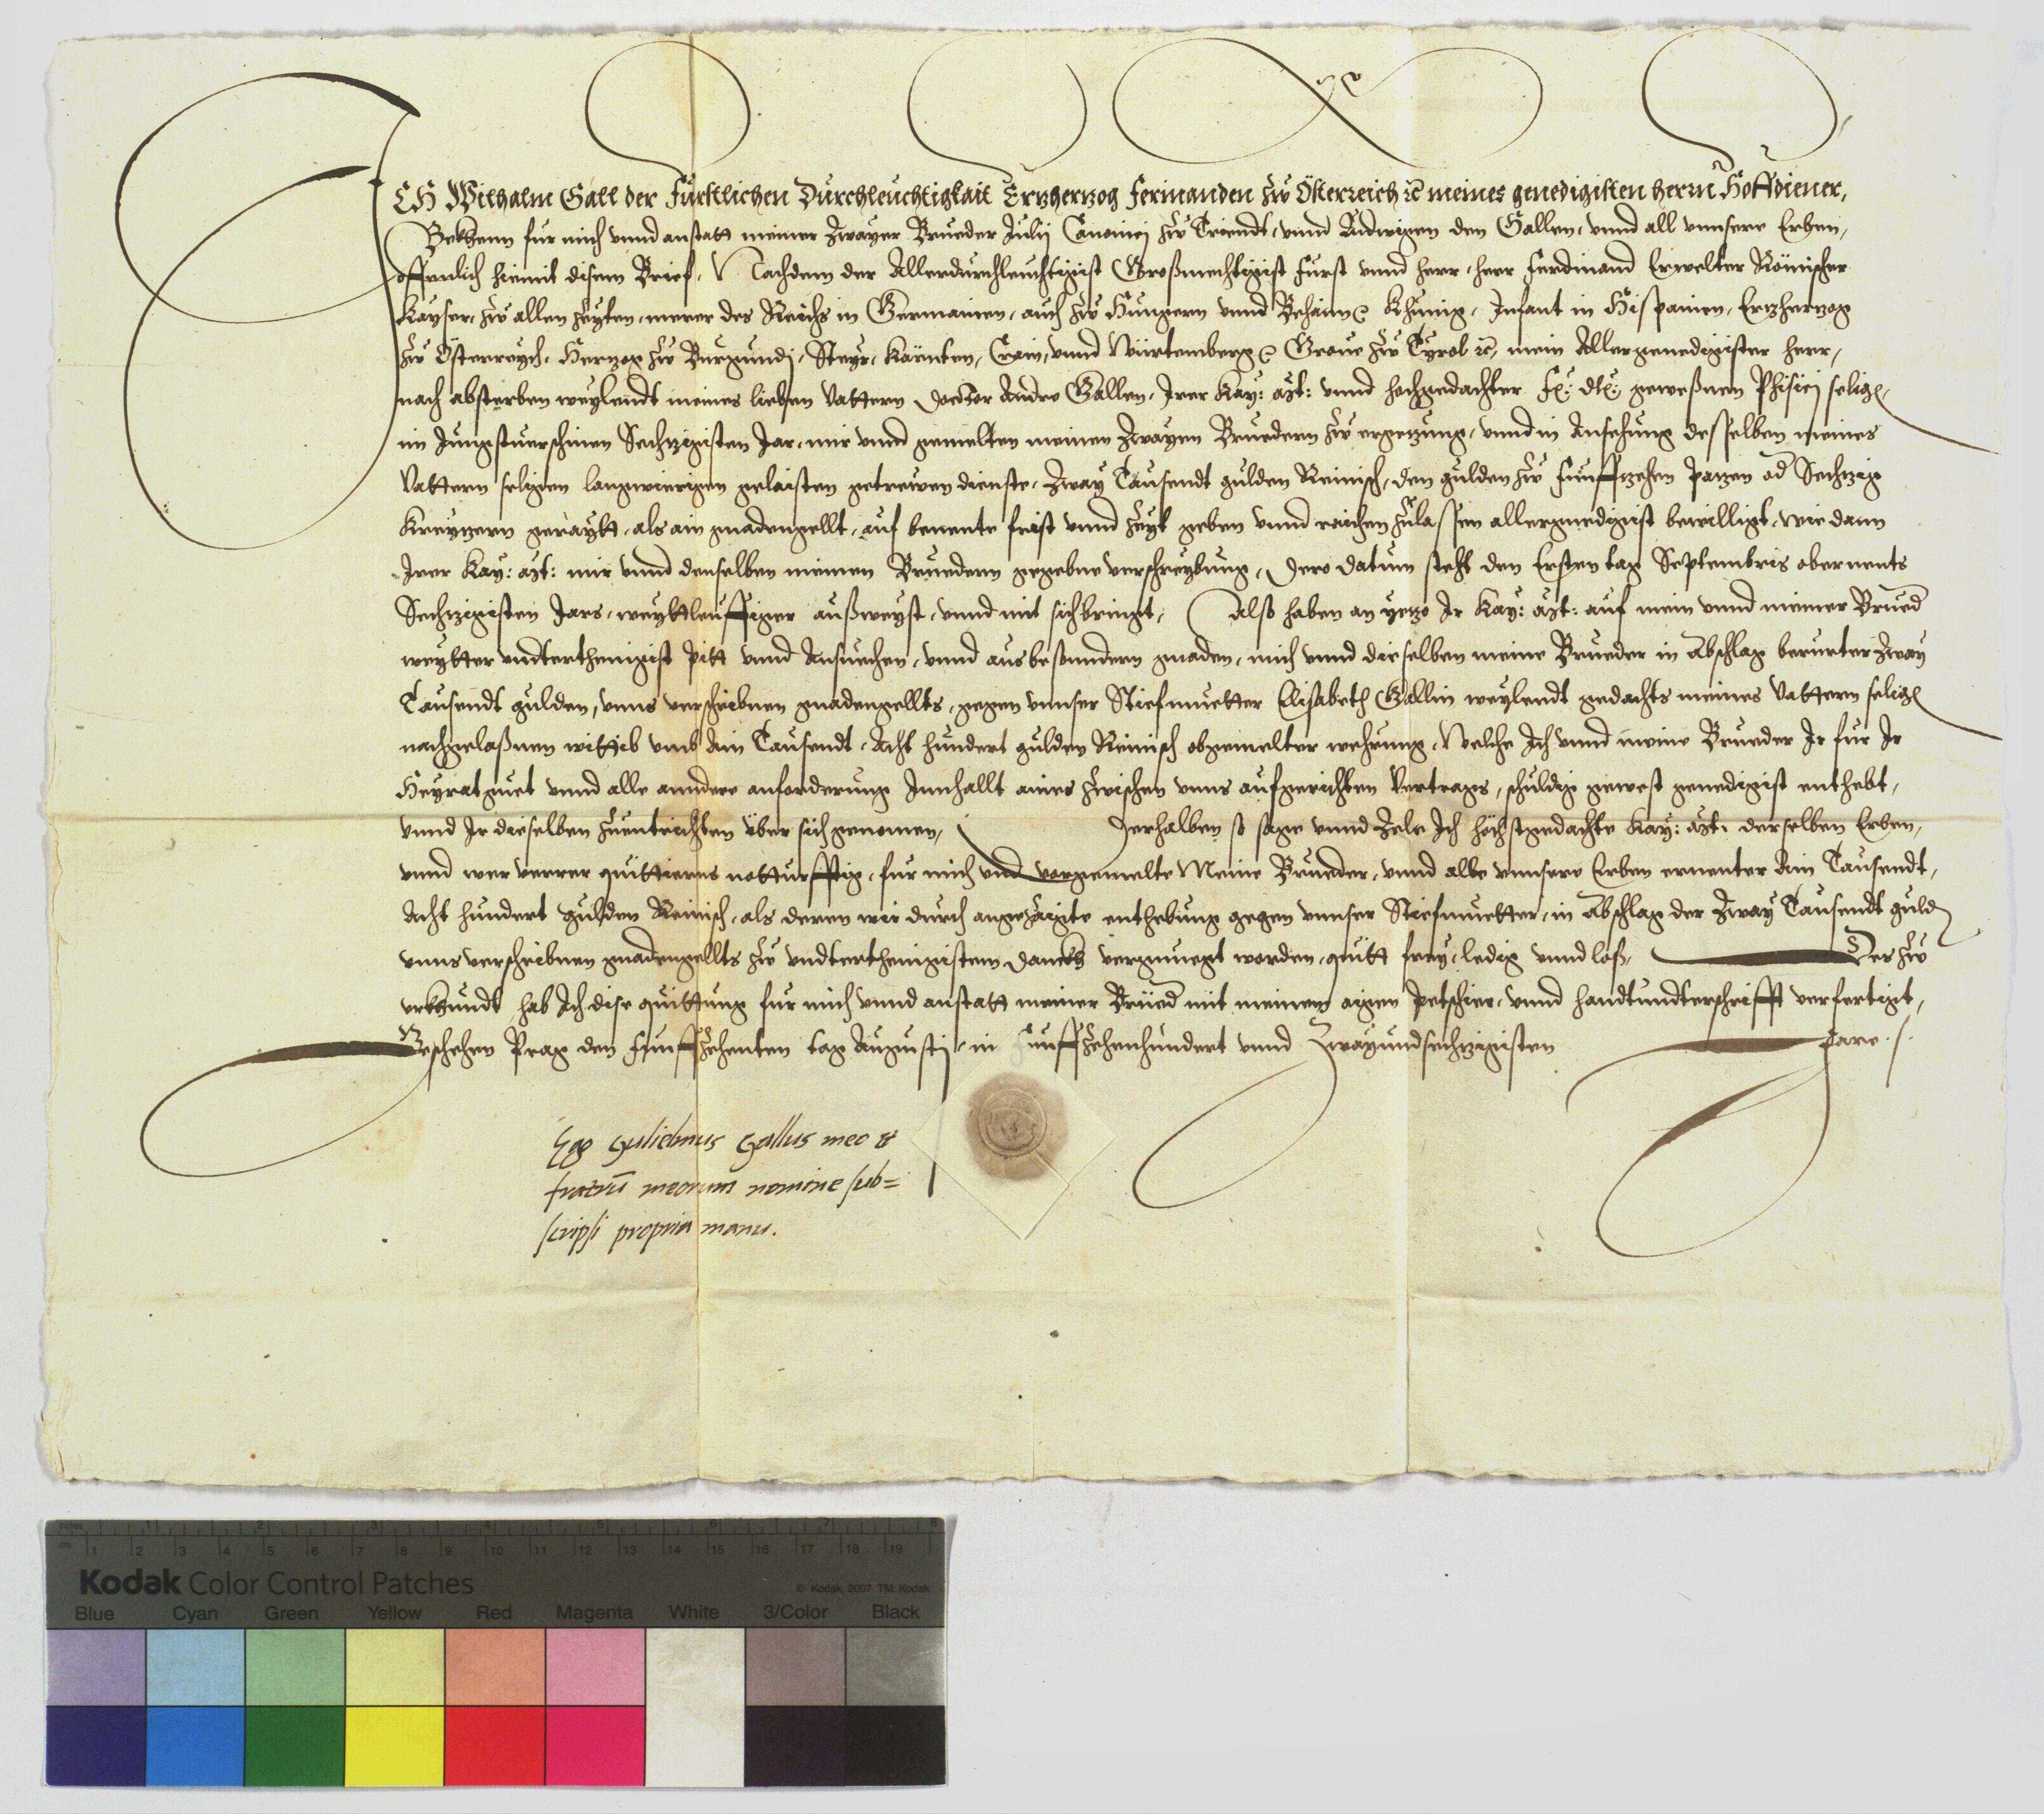 ICH Wilhalm Gall der Furstlichen Durchleuchtigkait Ertzhertzog Ferinanden zw Österreich etc meines genedigisten herrn Hoffdiener,
Bekhenn fur mich vnnd anstatt meiner zwayer Brueder Julij Canonici zw Triendt, vnnd Ludwigen den Gallen, vnnd all vnnsere Erben,
offennlich hiemit disem Brief, Nachdem der Allerdurchleuchtigist Großmechtigist Furst vnnd herr, herr Ferdinand Erwelter Römischer
Kayser, zw allen zeyten, merer des Reichs in Germanien, auch zw Hungern vnnd Behaim etc Khunig, Infant in Hispanien, Ertzhertzog
zw Österreych, Hertzog zw Burgundj, Steyr, Kärnten, Crain, vnnd Würtemberg etc Graue zw Tyrol etc, mein Allergenedigister herr,
nach absterben weylendt meines lieben Vattern Doctor Andre Gallen, Irer Kay: Mt: vnnd hochgedachter Fr: Dr: geweßnen Phisicj selig
im Jungstuerschinen Sechzigisten Jar, mir vnnd gemelten meinen zwayen Bruedern zw ergetzung, vnnd in Ansehung desselben meines
Vattern seligen langwierigen gelaisten getrewen dienste, Zway Tausendt gulden Reinisch, den gulden zw funffzehen patzen od Sechtzig
Kreytzern geraytt, als ain gnadengellt, auf benente frist vnnd zeyt geben vnnd raichen zulassen allergnedigist bewilligt, wie dann
Irer Kay: Mt: mir vnnd denselben meinen Bruedern gegebne verschreybung, Dero datum steht den Ersten tag Septembris obernents
Sechtzigisten Jars, weyttleuffiger außweyst, vnnd mit sich bringt, Also haben an yetzo Ir Kay: Mt: auf mein vnnd meiner Brued
weytter vndterthenigist pitt vnnd Ansuechen, vnnd aus besonndern gnaden, mich vnnd dieselben meine Brueder in Abschlag berurter zway
Tausendt gulden, vnns verschribnen gnadengellts, gegen vnnser Stiefmuetter Elisabeth Gallin weylendt gedachts meines Vattern selig
nachgelaßnen wittib vmb Ain Tausendt, Acht hundert gulden Reinisch obgemelter wehrung, Welche Ich vnnd meine Brueder Ir fur Ir
Heyratguet vnnd alle anndere anforderung Innhallt aines zwischen vnns aufgerichten Vertrags, schuldig gewest genedigist enthebt,
vnnd Ir dieselben zuentrichten über sich genomen, Derhalben so sage vnnd zele Ich höchstgedachte Kay: Mt: derselben Erben,
vnnd wer verrer quittierns notturfftig, fur mich vnd vorgemelte Meine Brueder, vnnd alle vnnsere Erben ernenter Ain Tausendt,
Acht hundert gulden Reinisch, als deren wir durch angezaigte enthebung gegen vnnser Stiefmuetter, in Abschlag der Zway Tausendt guld
vnns verschribnen gnadengellts zw vndterthenigistem danckh vergnuegt worden, quitt frey, ledig vnnd loß, Des zw
vrkhundt hab Ich dise quittung fur mich vnnd anstatt meiner Brüed mit meinem aigen petschier, vnnd handtundterschrifft verfertigt,
Beschehen Prag den funffzehenten tag Augustij, in Funffzehenhundert vnnd Zwayundsechtzigisten Jare ./.
Ego Gulielmus Gallus meo &
fratrū meorum nomine sub=
scripsi propria manu.
Kodak Color Control Patches
© Kodak, 2007 TM: Kodak
Blue Cyan Green Yellow Red Magenta White 3/Color Black